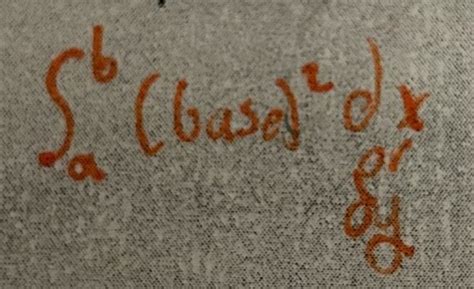 ∫ₐᵇ (base)² dx
or
dy